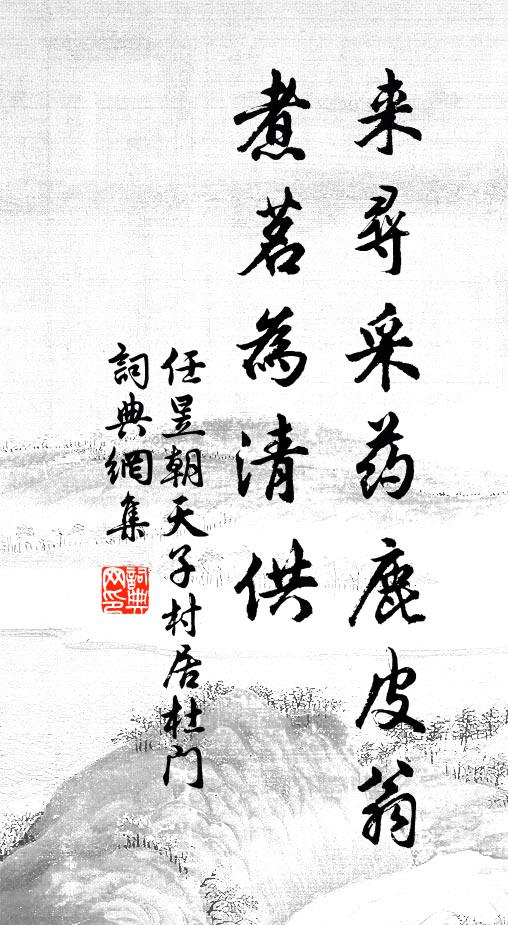 来尋采药鹿皮翁
煮茗為清供
任昱朝天子村居杜门
詞典網集
詞典网印